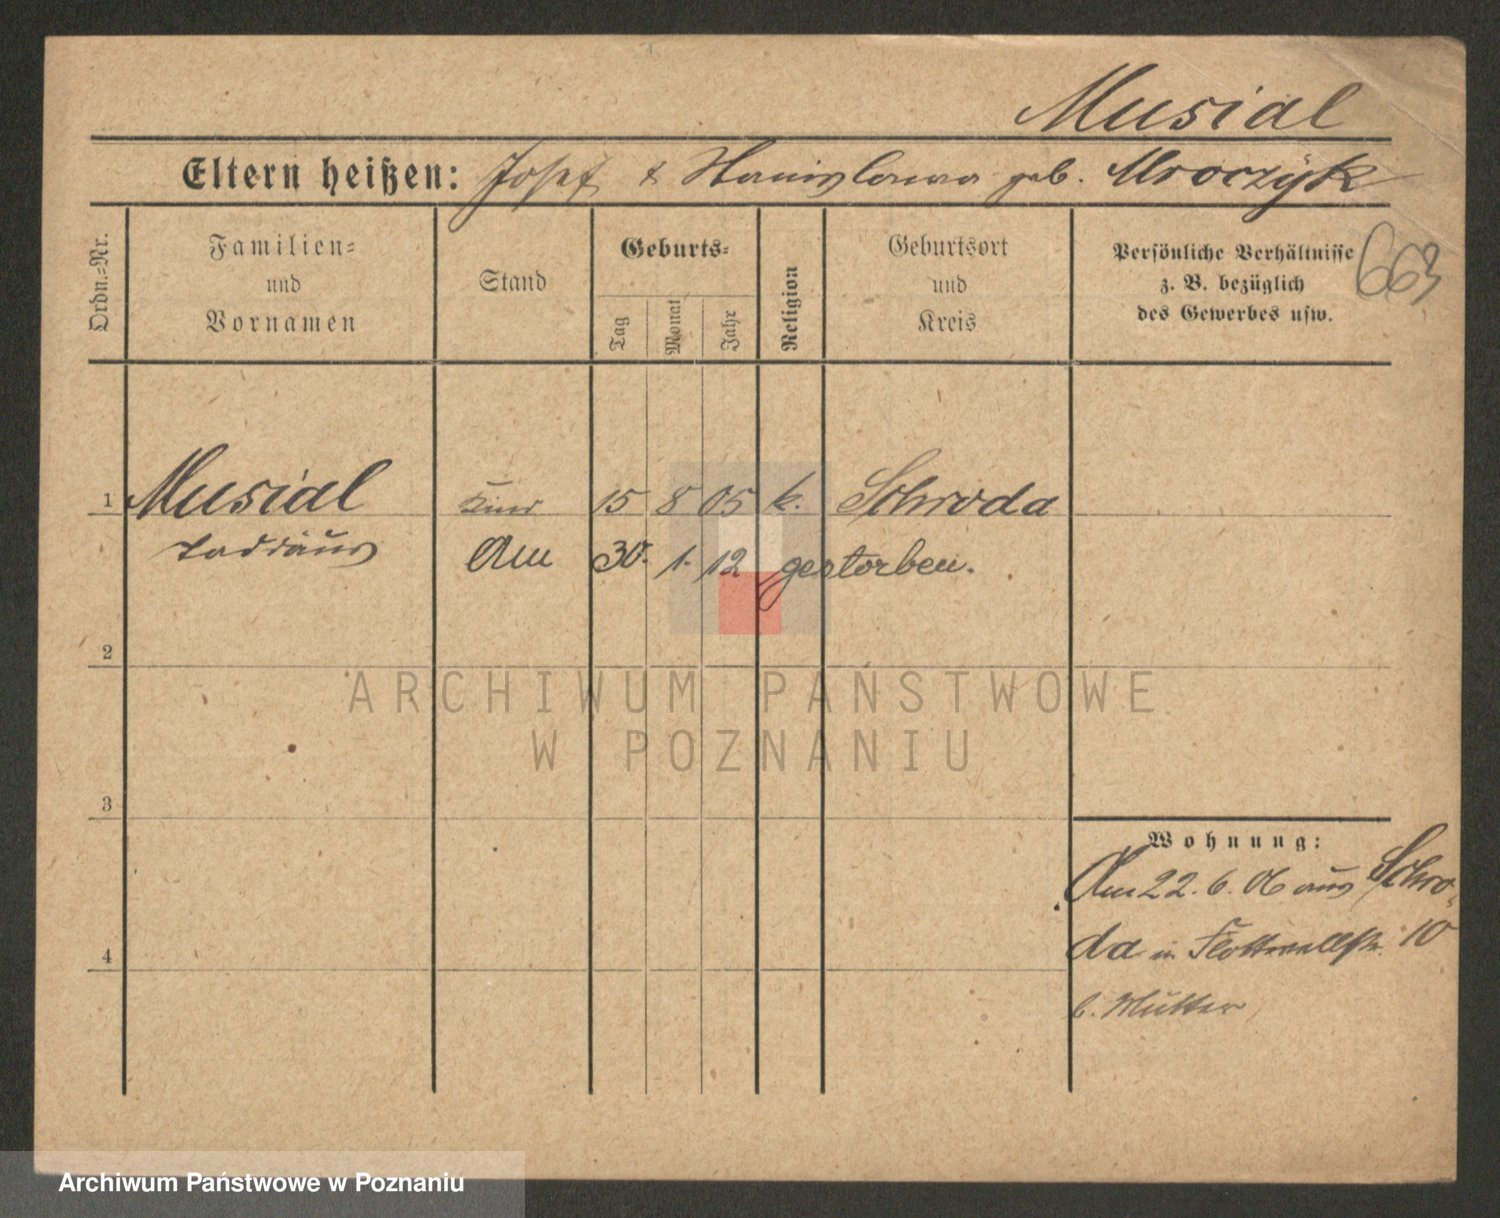 Musial
Eltern heißen: Josef & Stanislawa geb. Mroczyk
Ordn.-Nr.
Familien- und Vornamen
Stand
Geburts-
Tag
Monat
Jahr
Religion
Geburtsort und Kreis
Persönliche Verhältnisse
z. B. bezüglich
des Gewerbes usw.
663
1 Musial Kind 15 8 05 k. Schroda
Taddäus Am 30. 1. 12 gestorben.
2
ARCHIWUM PAŃSTWOWE
W POZNANIU
3
Wohnung:
Am 22. 6. 06 aus Schro-
da in Flottwellstr. 10
4
b. Mutter
Archiwum Państwowe w Poznaniu